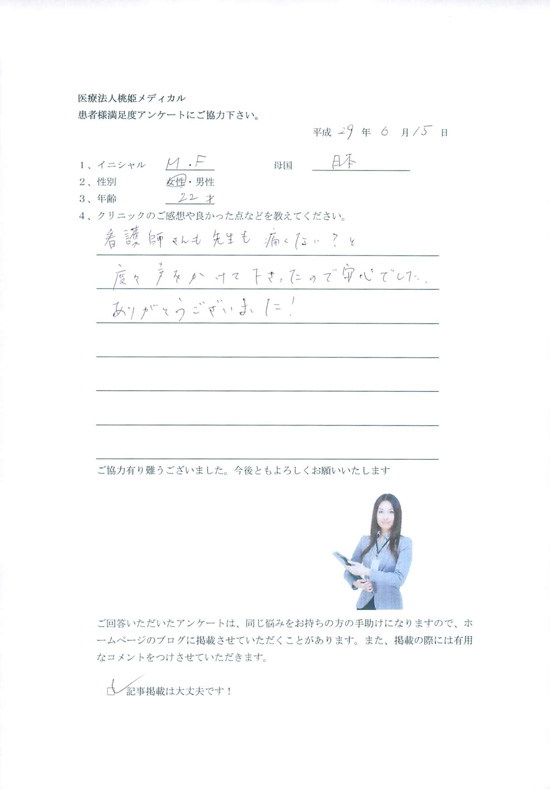 医療法人桃姫メディカル
患者様満足度アンケートにご協力下さい。
平成 29 年 6 月 15 日
1、イニシャル M.F 母国 日本
2、性別 女性・男性
3、年齢 22 才
4、クリニックのご感想や良かった点などを教えてください。
看護師さんも先生も痛くない?と
度々声をかけて下さったので安心でした。
ありがとうございました!
ご協力有り難うございました。今後ともよろしくお願いいたします
ご回答いただいたアンケートは、同じ悩みをお持ちの方の手助けになりますので、ホ
ームページのブログに掲載させていただくことがあります。また、掲載の際には有用
なコメントをつけさせていただきます。
☑ 記事掲載は大丈夫です!